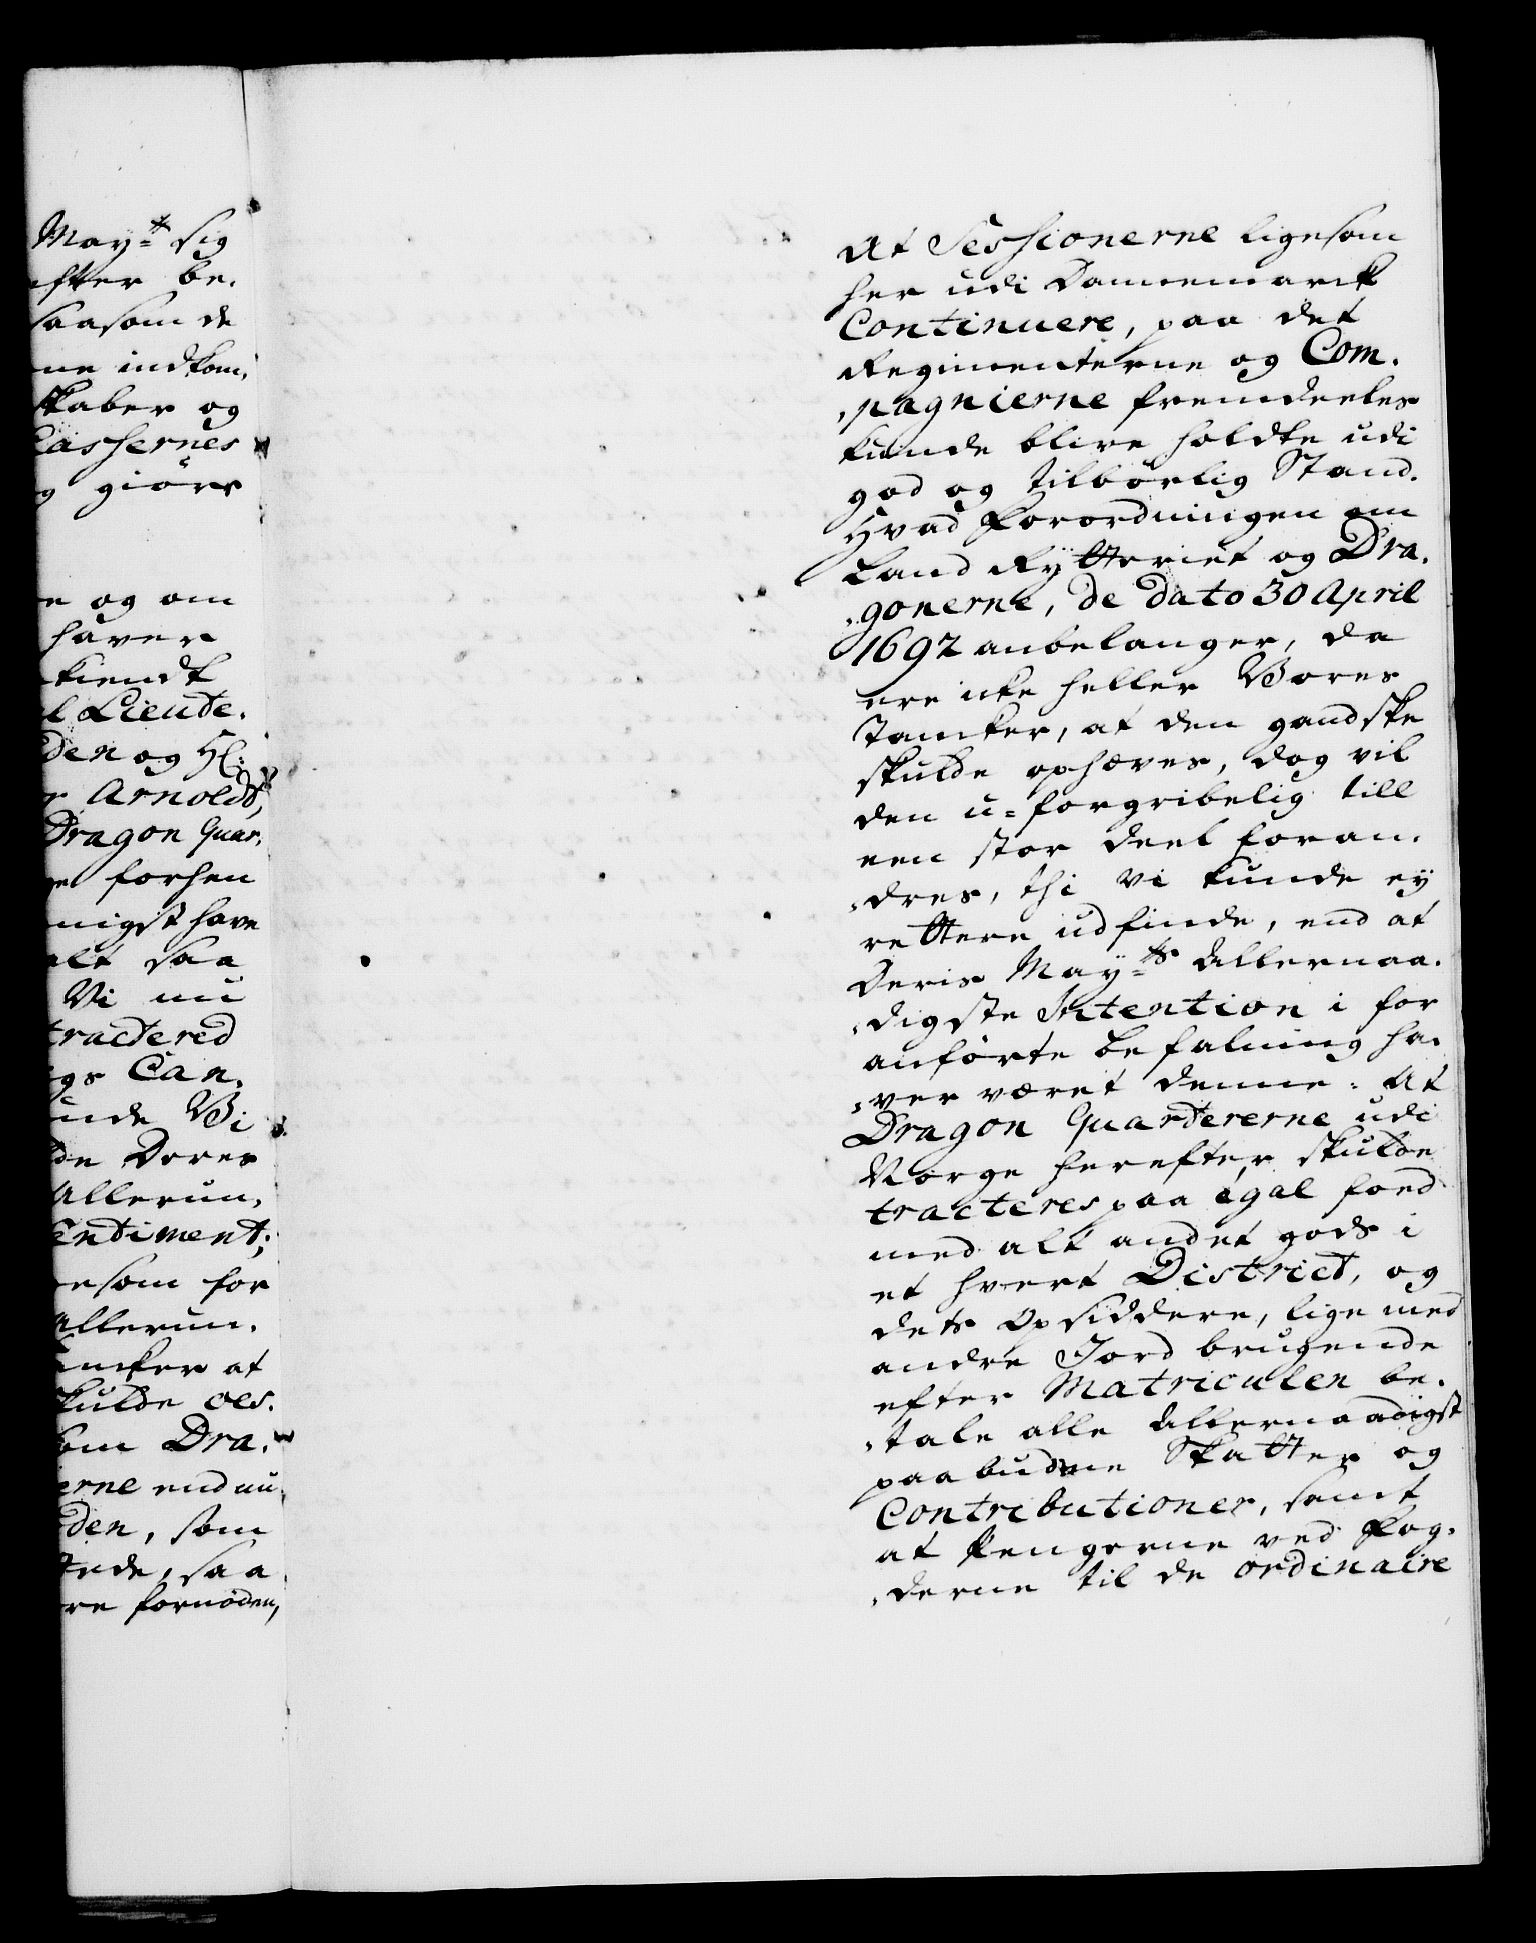 May:t sig
efter be.
saasom de
ne indkom.
skaber og
Cassernes
g giörs
e og om
haver
kiendt
l Lieute.
den og Hl:
r Arnoldt,
Dragon Quar.
forhen
nigst have
alt saa
Vi nu
tractered
gs Can.
unde Vi
de Deres
Allerun.
entiment;
esom for
Allerun.
ancker at
skulde oes.
om Dra.
erne endnu
den, som
tede, saa
re fornöden,
At Sessionerne ligesom
her udi Dannemarck
Continuere, paa det
Regimenterne og Com.
pagnierne fremdeeles
kunde blive holdte udi
god og tilbörlig Stand.
Hvad Forordningen om
Land Rytteriet og Dra.
gonerne, de dato 30 April
1692 anbelanger, da
ere icke heller Vores
Tancker, at den gandske
skulde ophæves, dog vil
den u-forgribelig till
een stor deel foran.
dres, thi vi kunde ey
rettere udfinde, end at
Deris May:ts Allernaa.
digste Intention i for
anförte befalning ha.
ver været denne: At
Dragon Quartererne udi
Norge herefter skulde
tracteres paa égal foed
med alt andet gods i
et hvert District, og
dets Opsiddere, lige med
andre Jord brugende
efter Matriculen be.
tale alle Allernaadigst
paabudne Skatter og
Contributioner, samt
at Pengerne ved Fog.
derne til de ordinaire